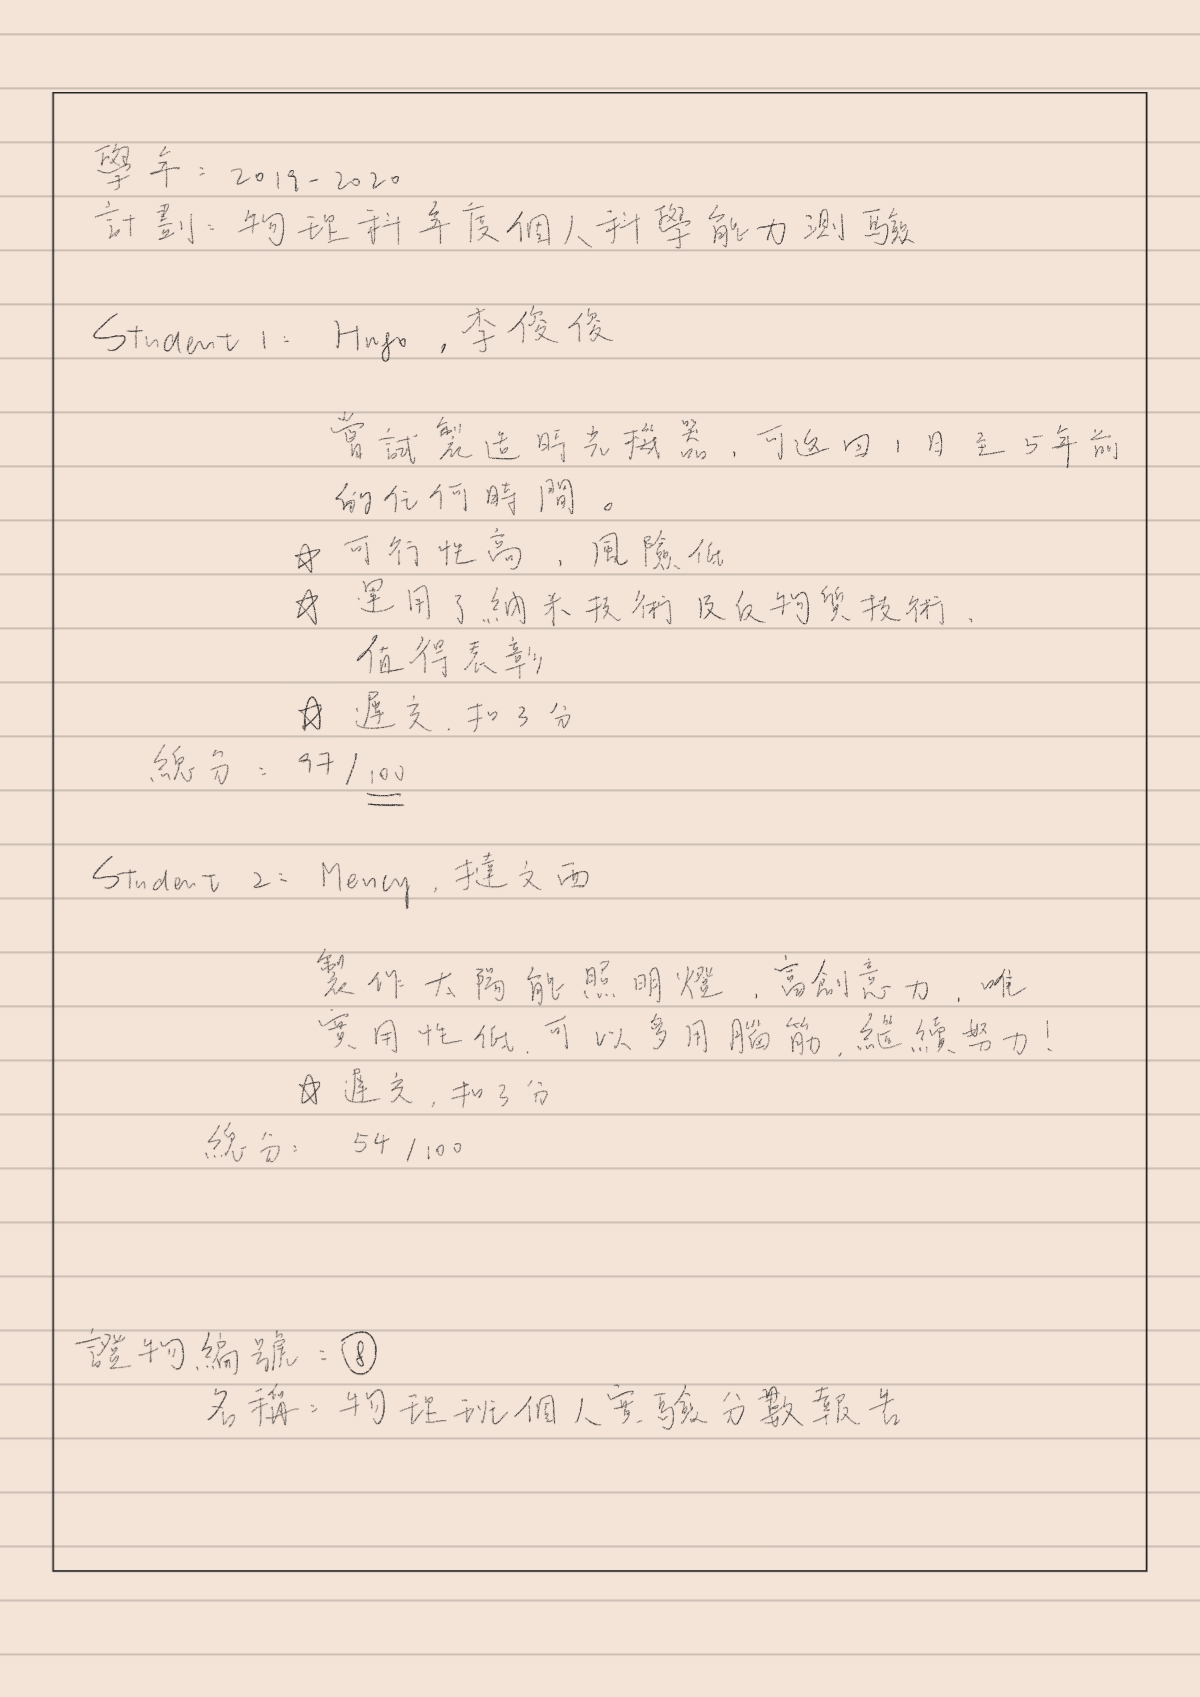 學年：2019-2020
計劃：物理科年度個人科學能力測驗
Student 1: Hugo，李俊俊
嘗試製造時光機器，可返回1日至5年前
的任何時間。
☆ 可行性高，風險低
☆ 運用了納米技術及反物質技術，
值得表彰
☆ 遲交，扣3分
總分：97/100
Student 2: Mency，撻文西
製作太陽能照明燈，高創意力，唯
實用性低，可以多用腦筋，繼續努力！
☆ 遲交，扣3分
總分：54/100
證物編號：⑧
名稱：物理班個人實驗分數報告